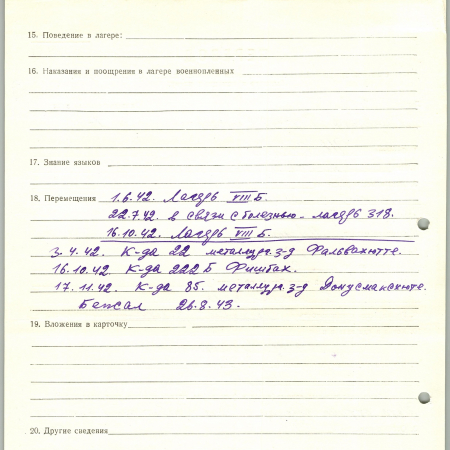 15. Поведение в лагере:
16. Наказания и поощрения в лагере военнопленных
17. Знание языков
18. Перемещения 1.6.42. Лагерь VIII Б.
22.7.42. в связи с болезнью - лагерь 318.
16.10.42. Лагерь VIII Б.
3.4.42. К-да 22 металлург. з-д Фальвахютте.
16.10.42. К-да 222 Б Фишбах.
17.11.42. К-да 85. металлург. з-д Донусмаксхюте.
Бежал 26.8.43.
19. Вложения в карточку
20. Другие сведения